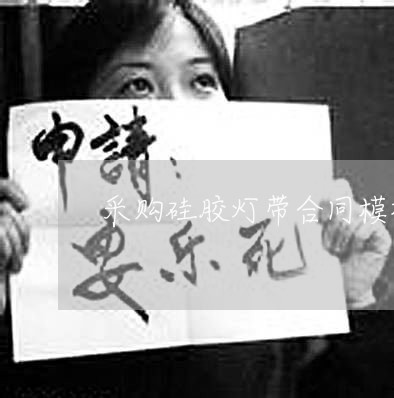 申請：
采购硅胶灯带合同模
安乐死